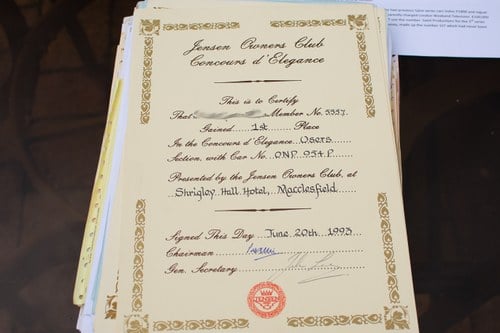 Jensen Owners Club
Concours d'Elegance
This is to Certify
That Member No. 5557.
Gained 1st Place
In the Concours d'Elegance Users
Section, with Car No. ONP 954 P
Presented by the Jensen Owners Club, at
Shrigley Hall Hotel, Macclesfield.
Signed This Day June 20th 1993
Chairman
Gen. Secretary
JENSEN